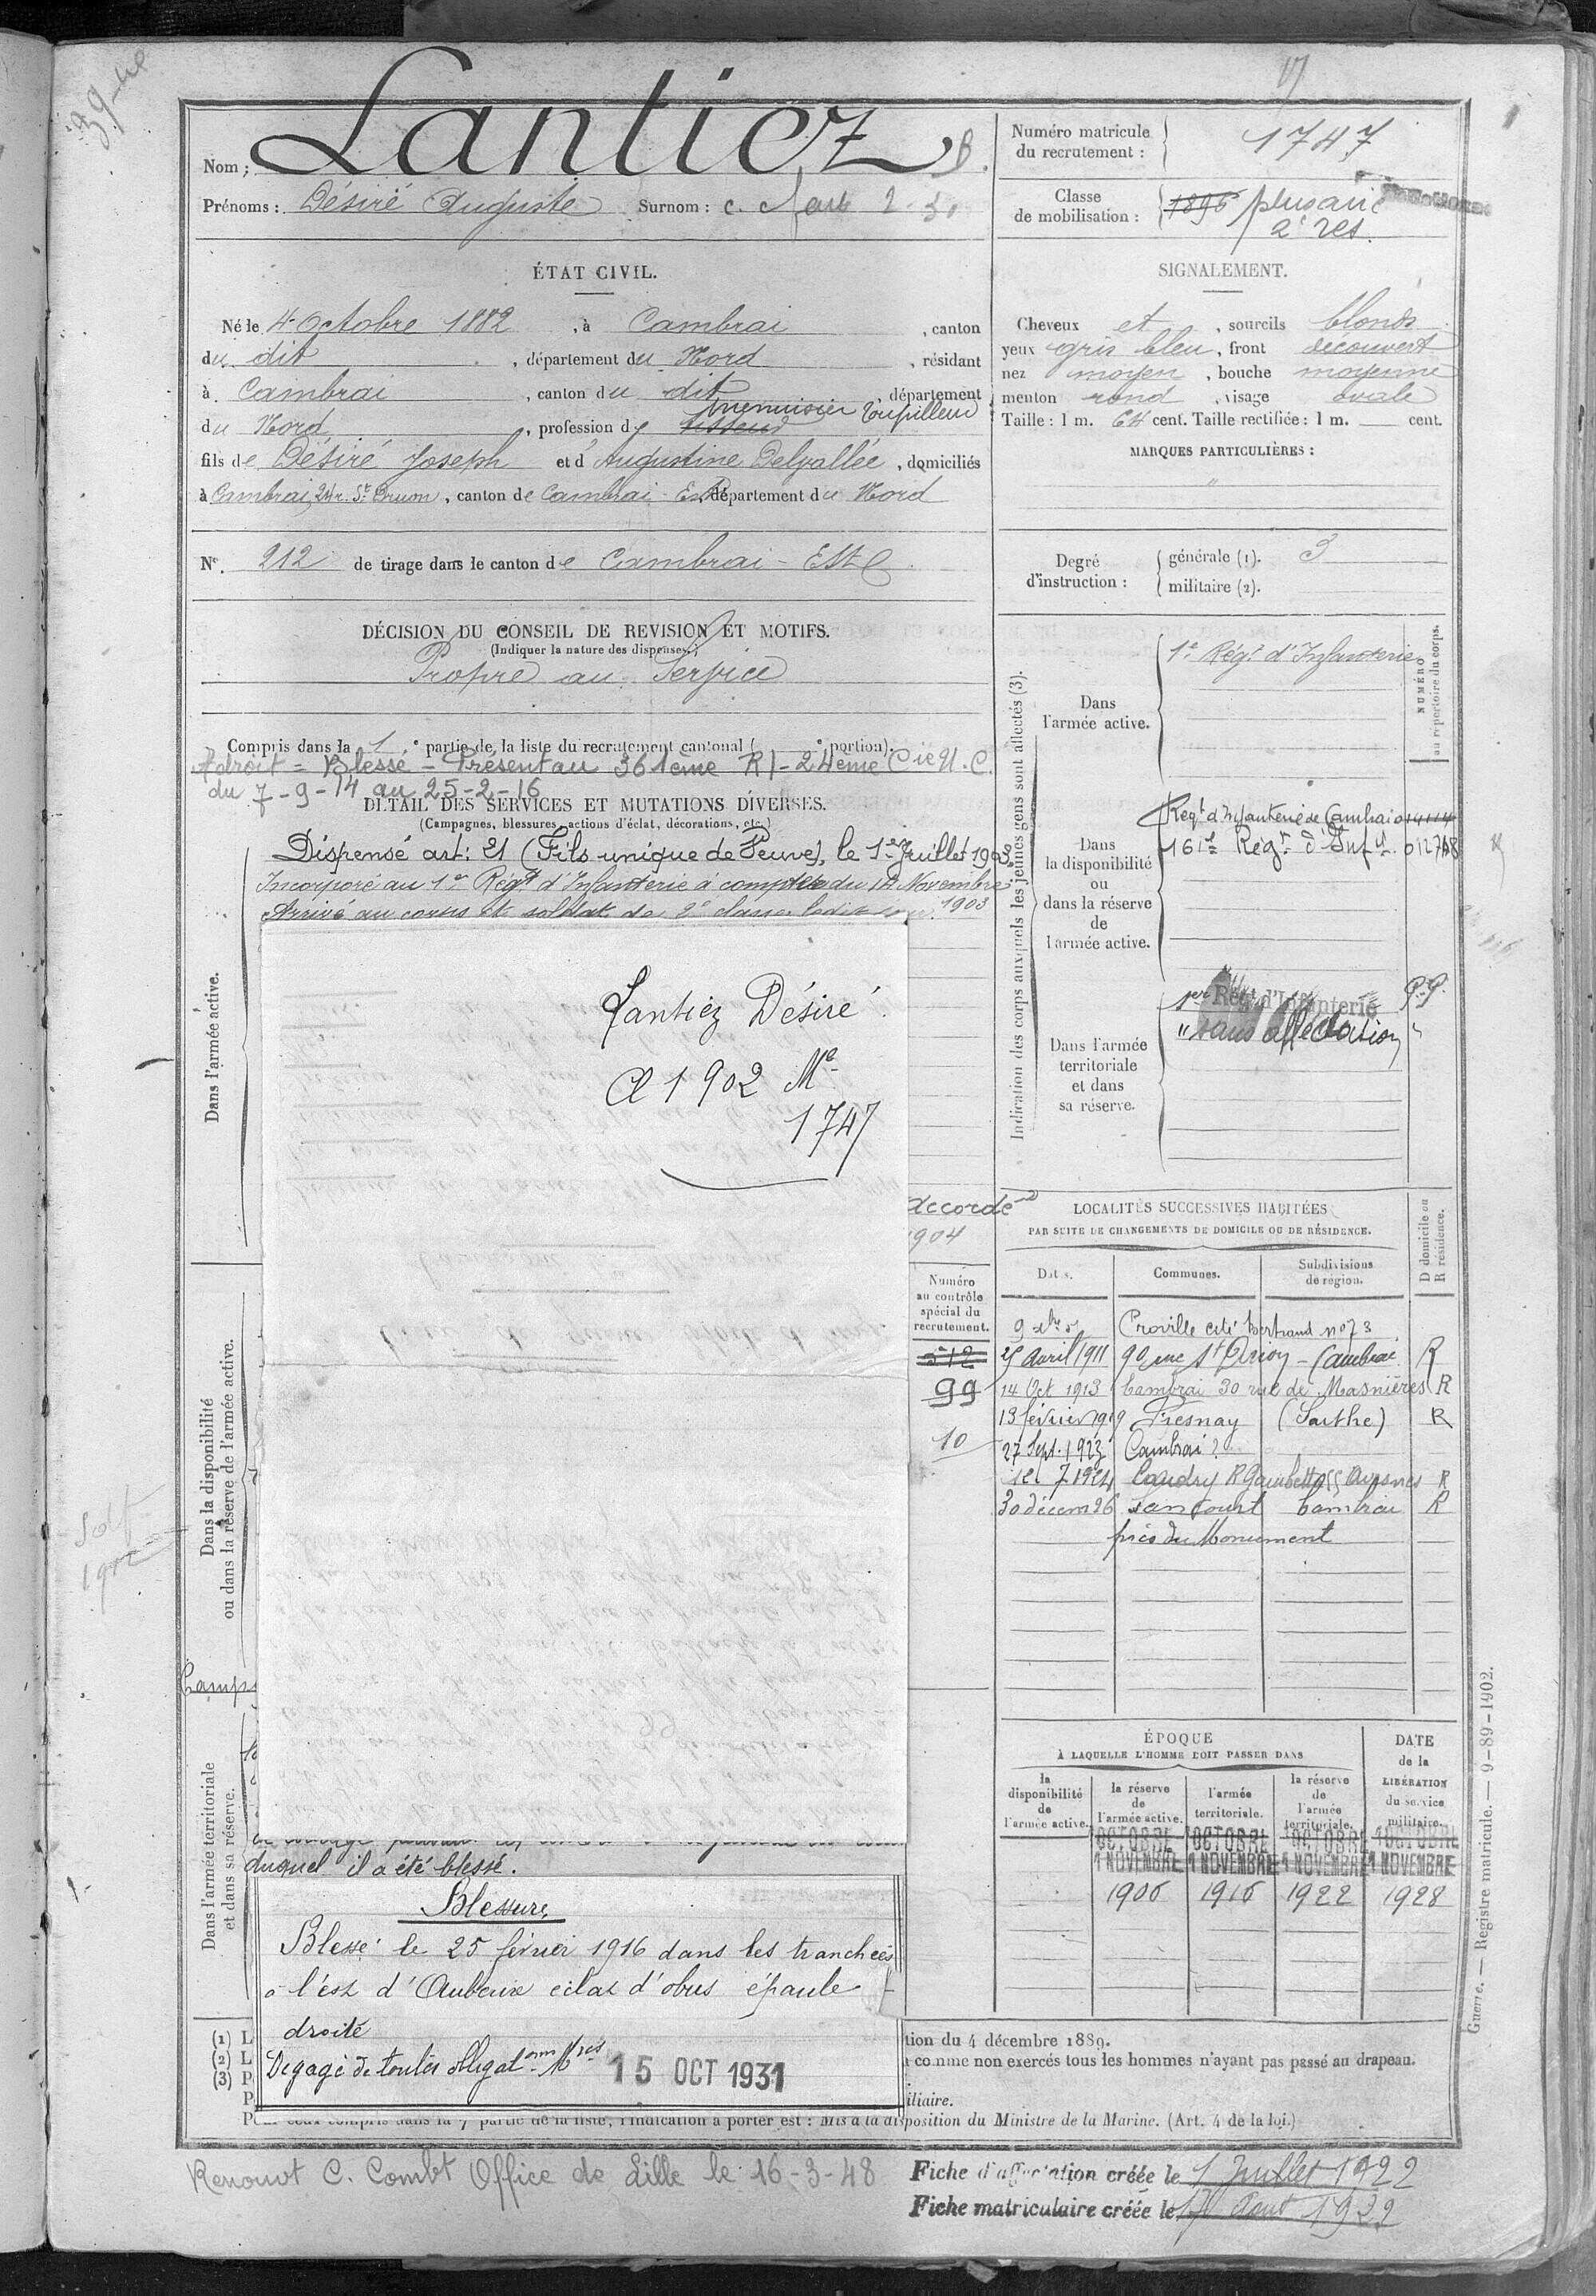 Nom : Lantiez B.
Prénoms : Désiré Auguste Surnom : C.
ÉTAT CIVIL.
Né le 4 Octobre 1882, à Cambrai, canton
du dit, département du Nord, résidant
à Cambrai, canton du dit, département
menuisier Toupilleur
du Nord, profession de tisseur
fils de Désiré Joseph et d'Augustine Delvallée, domiciliés
à Cambrai, 24 r. St Druon, canton de Cambrai Est, département du Nord
N°. 212 de tirage dans le canton de Cambrai - Est
DÉCISION DU CONSEIL DE REVISION ET MOTIFS.
(Indiquer la nature des dispenses.)
Propre au Service
Compris dans la 1e partie de la liste du recrutement cantonal ( e portion).
A droit = Blessé - Présent au 361ème RI - 24ème Cie U.C.
du 7-9-14 au 25-2-16
DÉTAIL DES SERVICES ET MUTATIONS DIVERSES.
(Campagnes, blessures, actions d'éclat, décorations, etc.)
Dispensé art: 21 (Fils unique de Veuve), le 1er Juillet 1903
Incorporé au 1er Régt d'Infanterie à compter du 14 Novembre
1903
Arrivé au corps et soldat de 2e classe ledit jour.
Dans l'armée active.
Lantiez Désiré
Cl 1902 Mle
1747
accordé
1904
Numéro
au contrôle
spécial du
recrutement.
512
99
10
Dans la disponibilité
ou dans la réserve de l'armée active.
Camp
Dans l'armée territoriale
et dans sa réserve.
duquel il a été blessé.
Blessure
Blessé le 25 février 1916 dans les tranchées
à l'est d'Auberive éclat d'obus épaule
droite
Dégagé de toutes obligatons Mres 15 OCT 1931
(1) L
(2) L
(3) P
P
tion du 4 décembre 1889.
comme non exercés tous les hommes n'ayant pas passé au drapeau.
iliaire.
Pour ceux compris dans la 7e partie de la liste, l'indication à porter est : Mis à la disposition du Ministre de la Marine. (Art. 4 de la loi.)
Renouvt C. Combt Office de Lille le 16-3-48
Fiche d'affectation créée le 1 Juillet 1922
Fiche matriculaire créée le 17 Aout 1922
Numéro matricule
du recrutement : 1747
Classe
de mobilisation : 1896 plus anc
2e res.
SIGNALEMENT.
Cheveux et, sourcils blonds
yeux gris bleu, front découvert
nez moyen, bouche moyenne
menton rond, visage ovale
Taille : 1 m. 64 cent. Taille rectifiée : 1 m. cent.
MARQUES PARTICULIÈRES :
"
Degré
d'instruction :
générale (1). 3
militaire (2).
Indication des corps auxquels les jeunes gens sont affectés (3).
NUMÉRO
au répertoire du corps.
Dans
l'armée active.
1er Régt d'Infanterie
Dans
la disponibilité
ou
dans la réserve
de
l'armée active.
Régt d'Infanterie de Cambrai 014114
161e Régt d'Infie 012748
Dans l'armée
territoriale
et dans
sa réserve.
1er Régt d'Infanterie P.P.
" sans affectation "
LOCALITÉS SUCCESSIVES HABITÉES
PAR SUITE DE CHANGEMENTS DE DOMICILE OU DE RÉSIDENCE.
D domicile ou
R résidence.
Dates. Communes. Subdivisions
de région.
Proville cité Bertrand no 73
25 Avril 1911 90 rue St Druon - Cambrai R
14 Oct 1913 Cambrai 30 rue de Masnières R
13 février 1919 Fresnay (Sarthe) R
27 Sept. 1923 Cambrai ?
12 7 1924 Caudry R Gambetta 55 Avesnes R
30 décem 26 Sancourt Cambrai R
près du Monument
ÉPOQUE
À LAQUELLE L'HOMME DOIT PASSER DANS
DATE
de la
LIBÉRATION
du service
militaire.
la
disponibilité
de
l'armée active.
la réserve
de
l'armée active.
l'armée
territoriale.
la réserve
de
l'armée
territoriale.
OCTOBRE OCTOBRE OCTOBRE 1 OCTOBRE
1 NOVEMBRE 1 NOVEMBRE 1 NOVEMBRE 1 NOVEMBRE
1906 1916 1922 1928
Guerre. — Registre matricule. — 9-89-1902.